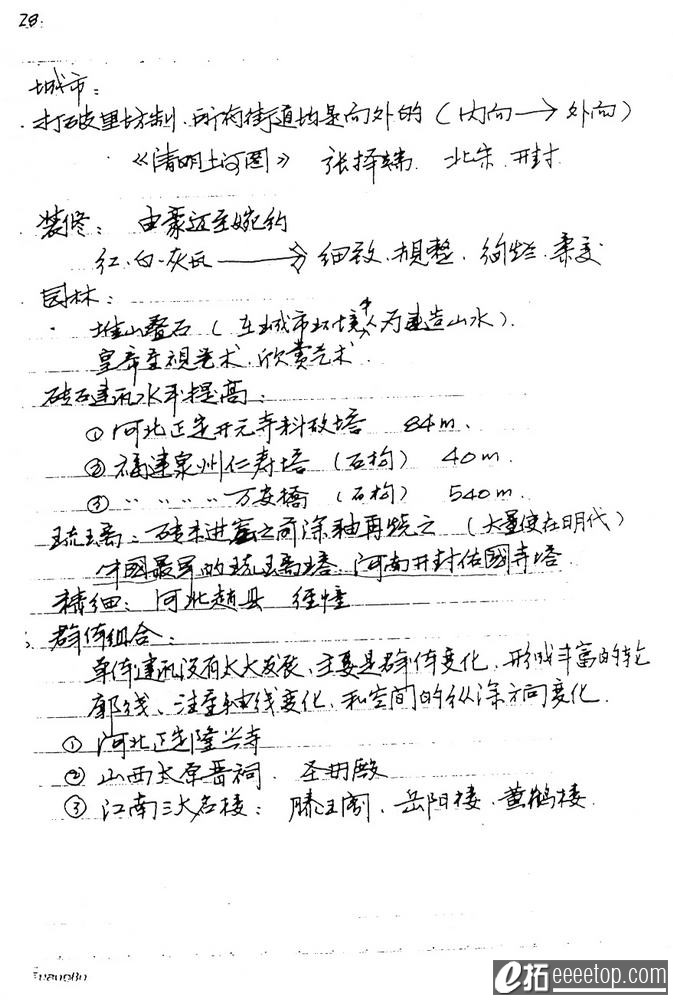 28.
城市：
·打破里坊制、所有街道均是向外的（内向→外向）
《清明上河图》 张择端. 北宋. 开封.
装修： 由豪迈至婉约
红.白.灰瓦 → 细致.规整.绚烂.柔美
园林：
· 堆山叠石（在城市环境中人为建造山水）.
皇帝重视艺术.欣赏艺术.
砖石建筑水平提高：
① 河北正定开元寺料敌塔 84m.
② 福建泉州仁寿塔（石构） 40m.
③ 〃 〃 〃 〃 万安橋（石构） 540m.
琉璃：砖未进窑之前涂釉再烧之（大量使在明代）
中國最早的琉璃塔：河南开封佑國寺塔.
精细：河北趙县 经幢
群体组合：
单体建筑没有太大发展、主要是群体变化、形成丰富的轮
廓线、注重轴线变化、和空间的纵深方向变化.
① 河北正定隆兴寺
② 山西太原晋祠. 圣母殿
③ 江南三大名楼：滕王阁、岳阳楼、黄鹤楼.
GuangBo
e拓 eeeetop.com